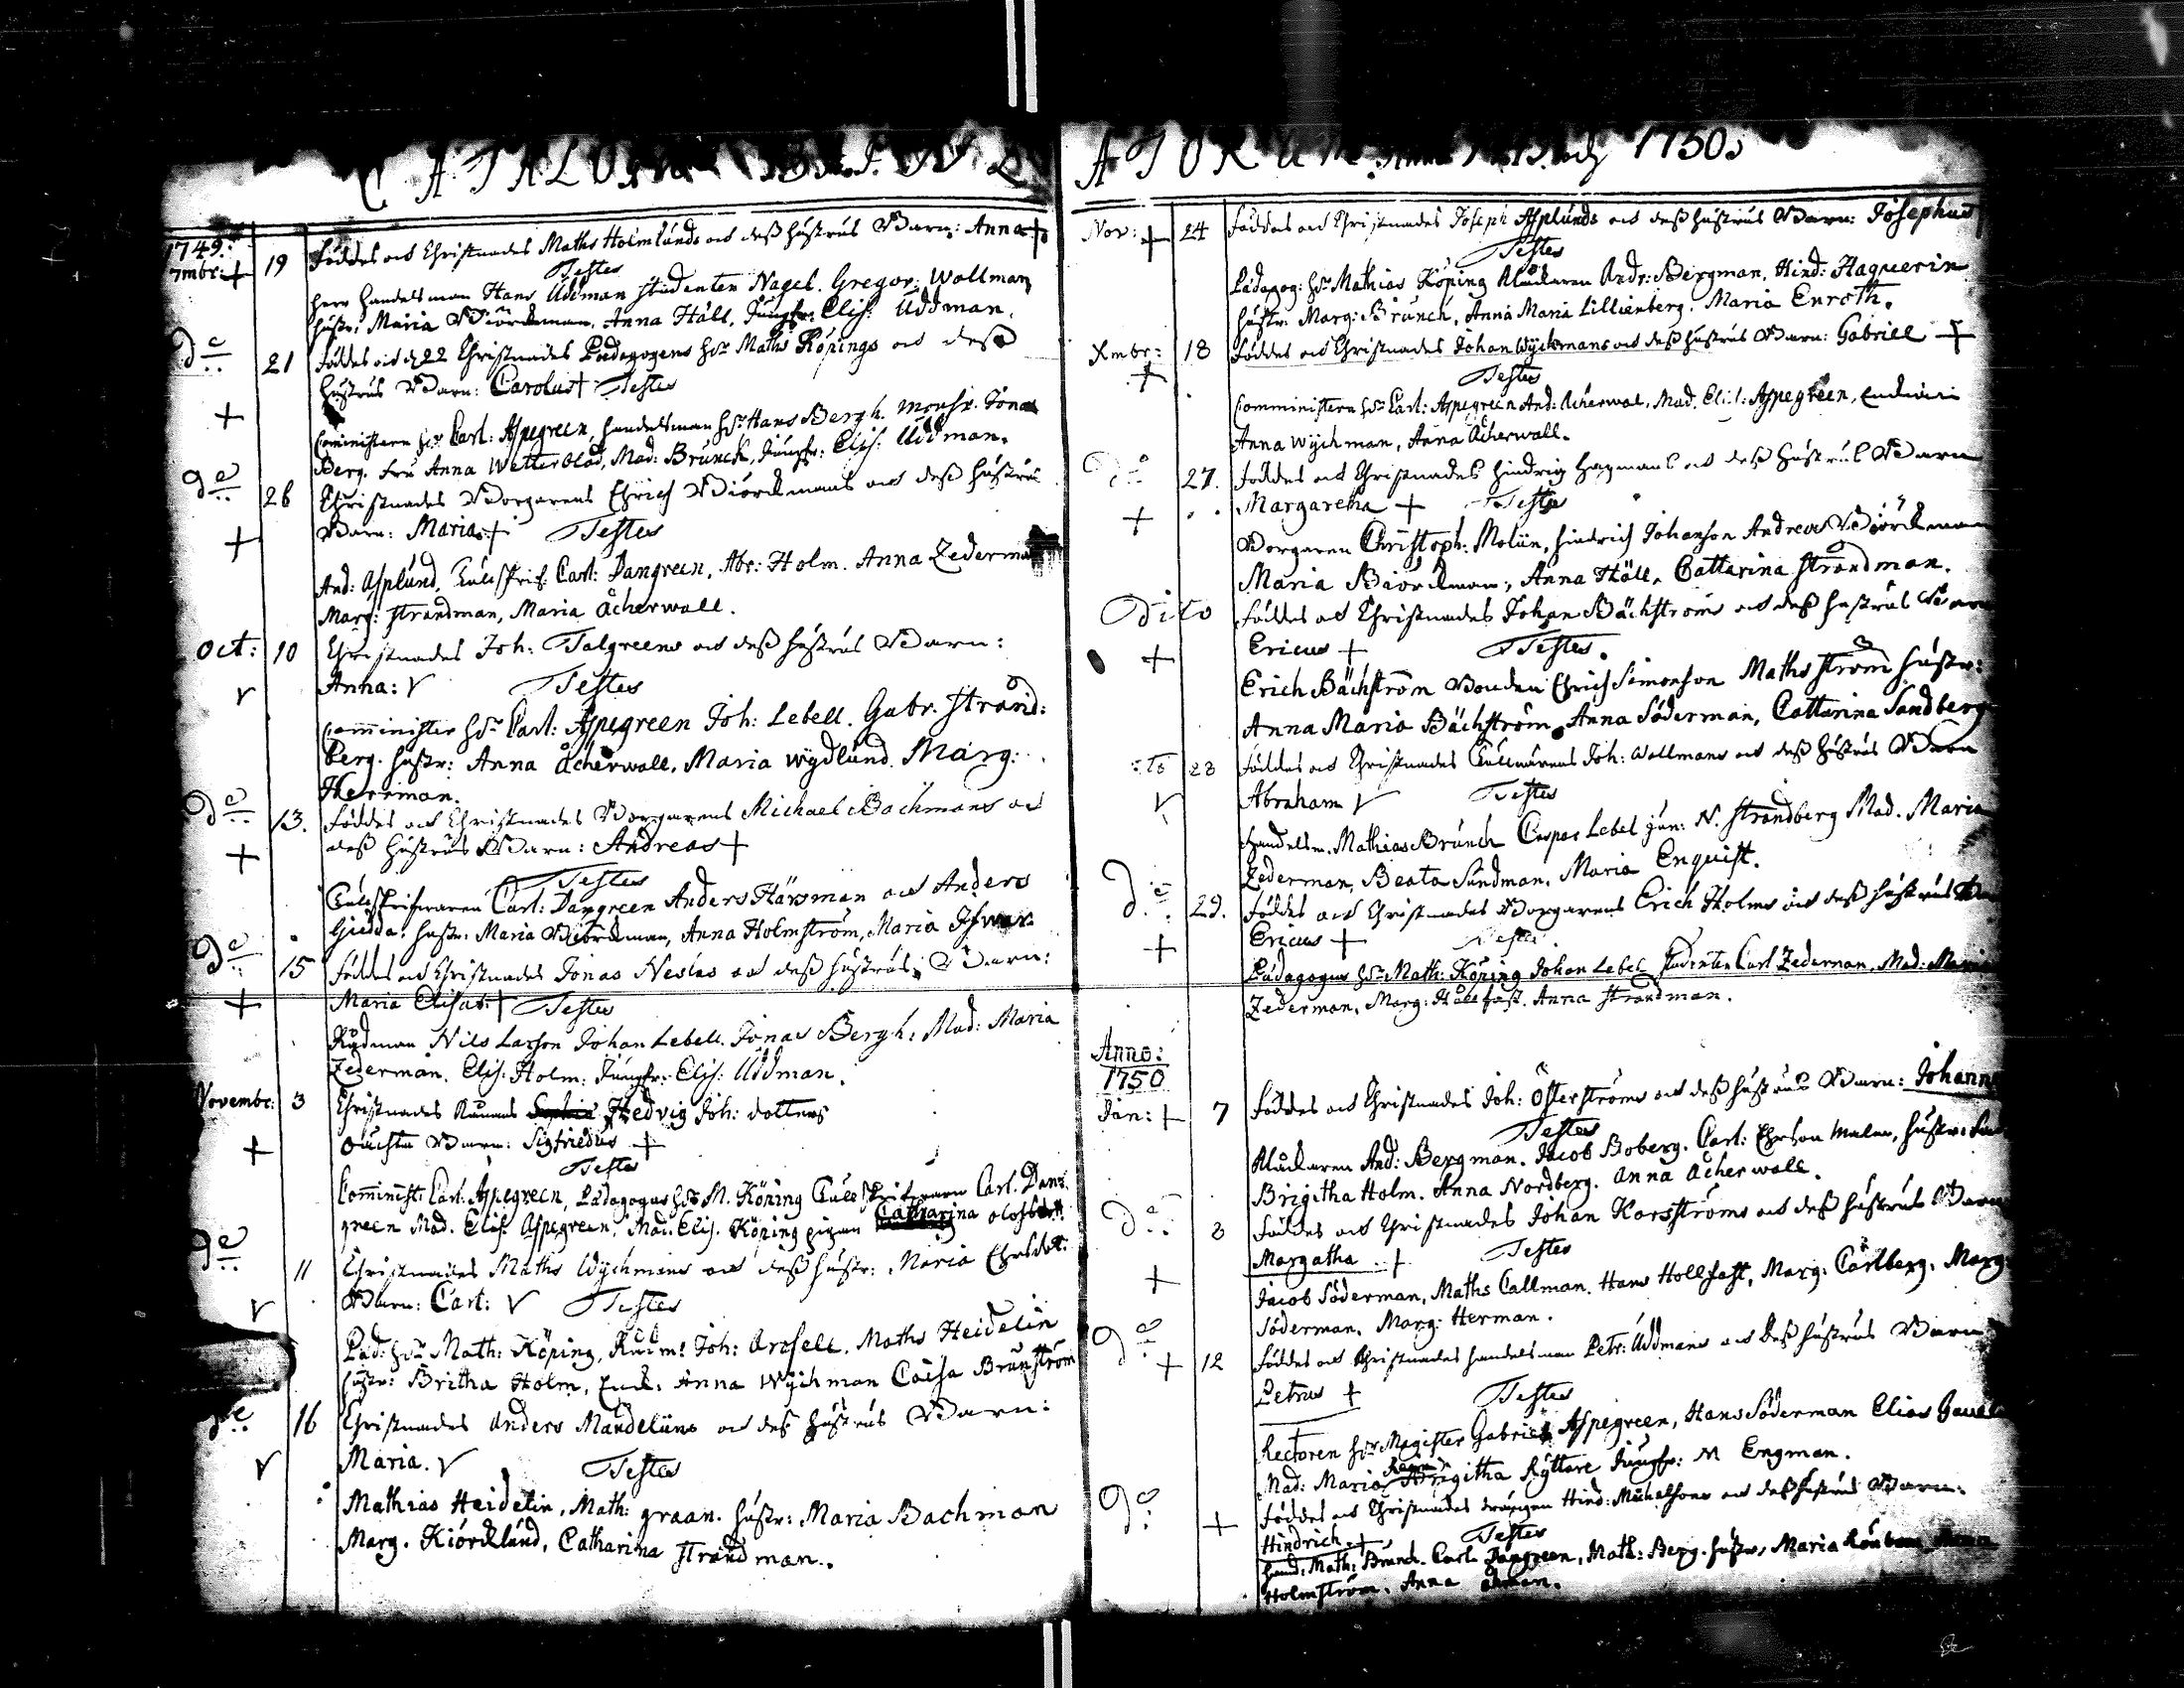 CATALOGUS
1749:
7mbr: + 19 Föddes och Christnades Maths Holmlunds och dess hustrus Barn: Anna +
Testes
herr handelsman Hans Uddman studenten Nagel. Gregor: Wollman
hustr: Maria Biörckman, Anna Häll, Jungfr: Elis: Uddman.
de 21 föddes och d 22 Christnades Pædagogens Hr Maths Köpings och dess
+ hustrus Barn: Carolus + Testes
Comministern Hr Carl: Aspegreen, handelsman Hr Hans Bergh. Monsr. Jonas
Berg. fru Anna Wetterblad, Mad: Brunck, Jungfr: Elis: Uddman.
de 26 Christnades Borgarens Erich Biörckmans och dess hustrus
+ Barn: Maria + Testes
And: Asplund, Carl: Dangreen, Abr: Holm. Anna Zederman
Marg: Strandman, Maria Åcherwall.
Oct: 10 Christnades Joh: Talgreens och dess hustrus Barn:
V Anna: V Testes
Comminister Hr Carl: Aspegreen Joh: Lebell. Gabr. Strand:
berg. hustr: Anna Åcherwall, Maria Wydlund. Marg:
Herrman.
de 13. föddes och Christnades Borgarens Michael Bachmans och
+ dess hustrus Barn: Andreas +
Testes
Carl: Dangreen Anders Härsman och Anders
Giedda. hustr: Maria Biörckman, Anna Holmström, Maria
de 15 föddes och Christnades Jonas Neslas och dess hustrus Barn:
+ Maria Elisab: + Testes
Rådman Nils Larson Johan Lebell. Jonas Bergh: Mad: Maria
Zederman. Elis: Holm: Jungfr: Elis: Uddman.
Novembr: 3 Christnades Hedvig Joh: dotters
+ oächta Barn: Sigfriedus +
Testes
Comminist: Carl: Aspegreen, Pædagogus Hr M. Köping Carl. Dan:
green Mad. Elis: Aspegreen, Mad. Elis. Köping pigan Catharina
de 11 Christnades Maths Wychmans och dess hustr: Maria
V Barn: Carl: V Testes
Pæd: Hr Math: Köping, Joh: Maths Heidelin
hustr: Britha Holm, Anna Wychman Caisa Brunström
de 16 Christnades Anders Mandelins och dess hustrus Barn:
V Maria. V Testes
Mathias Heidelin, Math: graan. hustr: Maria Bachman
Marg. Kiörcklund, Catharina Strandman.
ATORUM Anno och 1750.
Nov: + 24 föddes och Christnades Joseph Asplunds och dess hustrus Barn: Josephus
Testes
Pædagog: Hr Mathias Köping Klockaren Andr: Bergman, Hind: Haquerin
hustr: Marg: Brunck, Anna Maria Lillienberg. Maria Enroth.
Xmbr: 18 föddes och Christnades Johan Wychmans och dess hustrus Barn: Gabriell +
+ Testes
Comministern Hr Carl: Aspegreen And: Åcherwal, Mad. Elis: Aspegreen,
Anna Wychman, Anna Åcherwall.
de 27. föddes och Christnades Hindrig Hagmans och dess hustrus Barn
+ Margaretha + Testes
Borgaren Christoph: Molin, Hindrich Johanson Andreas Biörckman
Maria Biörckman, Anna Häll, Cattarina Strandman.
Dito föddes och Christnades Johan Bächströms och dess hustrus Barn
+ Ericus + Testes.
Erich Bächström Bonden Erich Simonson Maths Ström hustr:
Anna Maria Bächström, Anna Söderman, Cattarina Sandberg
:to 28 föddes och Christnades Joh: Wollmans och dess hustrus Barn
V Abraham V Testes
Handelsm. Mathias Brunck Caspar Lebel jun: N. Strandberg Mad. Maria
Zederman, Beata Sundman. Maria Enquist.
de 29. föddes och Christnades Borgarens Erich Holms och dess hustrus
+ Ericus + Testes
Pædagogus Hr Math: Köping Johan Lebel Studenten Carl Zederman. Mad: Maria
Zederman, Marg: Hållfast. Anna Strandman.
Anno:
1750
Jan: + 7 föddes och Christnades Joh: Österströms och dess hustrus Barn: Johannes
Testes
Klockaren And: Bergman. Jacob Boberg. Carl: Ehrson Malen, hustr:
Brigitha Holm. Anna Nordberg. Anna Åcherwall.
de 8 föddes och Christnades Johan Korsströms och dess hustrus Barn
+ Margatha + Testes
Jacob Söderman, Maths Callman. Hans Hollfast, Marg: Carlberg, Marg
Söderman. Marg: Herman.
de + 12 föddes och Christnades handelsman Petr: Uddmans och dess hustrus Barn
Petrus + Testes
Rectoren Hr Magister Gabriel Aspegreen, Hans Söderman Elias
Mad: Maria Brigitha Ryttare Jungfr: M Engman.
de + föddes och Christnades drängen Hind: Michelsons och dess hustrus Barn.
Hindrich + Testes
Hand: Math: Brunck. Carl Dangreen, Math: Berg. hustr, Maria
Holmström. Anna